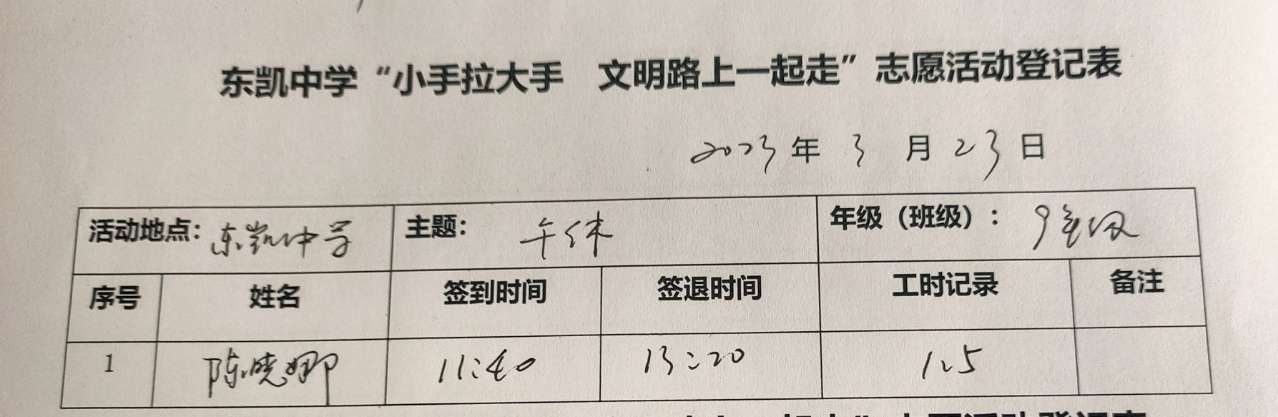 东凯中学“小手拉大手 文明路上一起走”志愿活动登记表
2023年 3 月 23日
活动地点：东凯中学 主题： 午休 年级（班级）：9年级
序号 姓名 签到时间 签退时间 工时记录 备注
1 陈晓娜 11:40 13:20 1.5